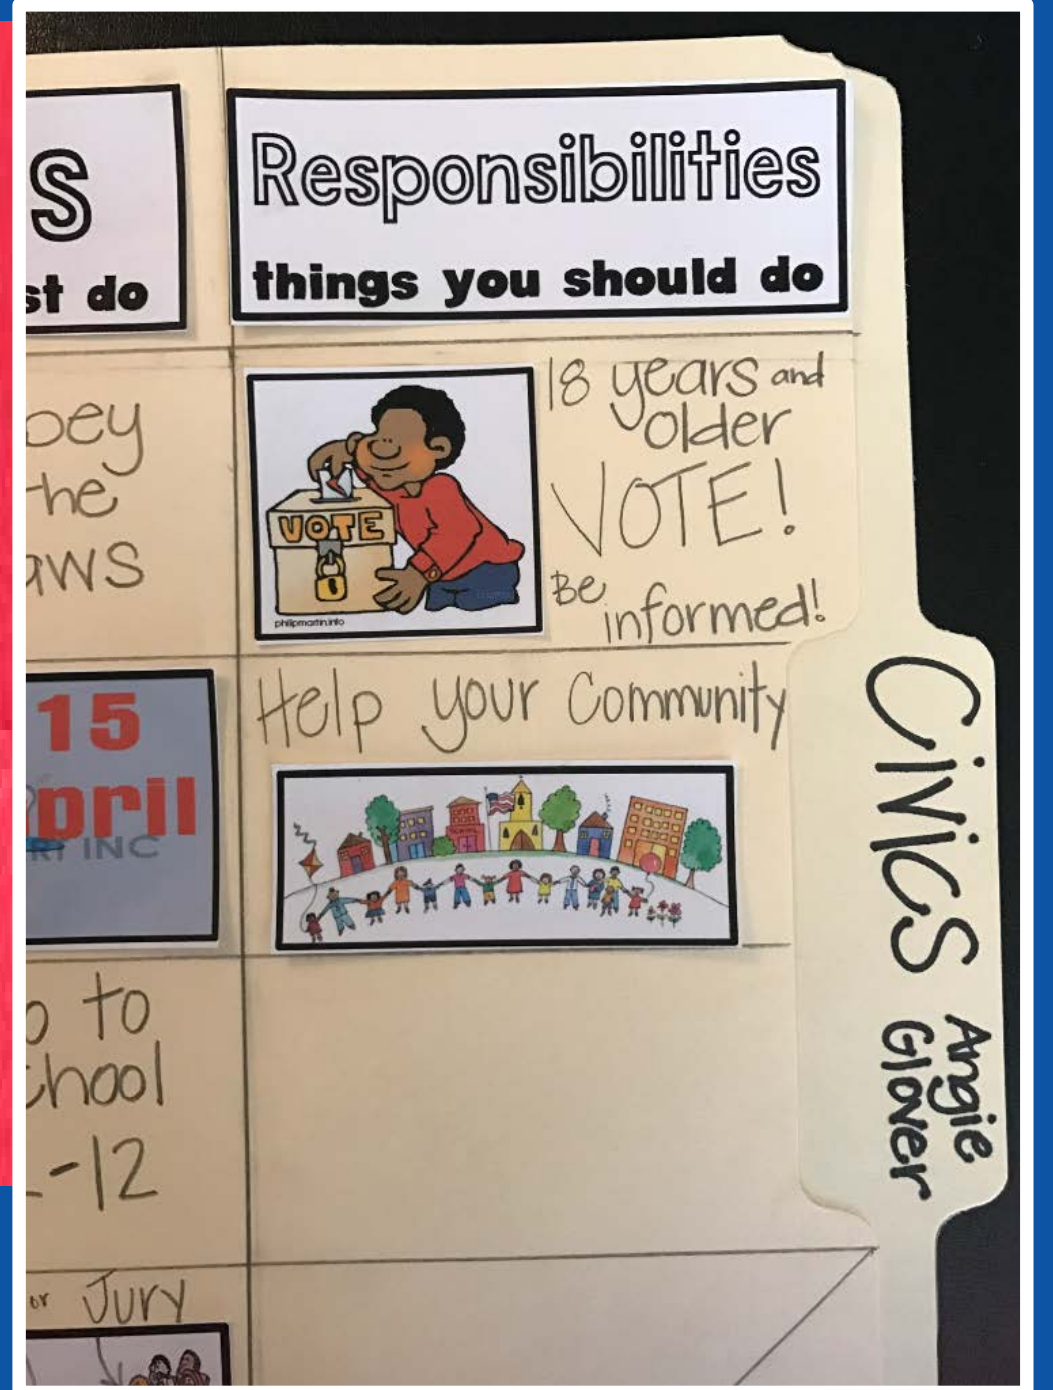 S
st do
Responsibilities
things you should do
bey
the
aws
VOTE
philipmartin.info
18 years and
older
VOTE!
Be
informed!
15
pril
INC
Help your Community
o to
chool
-12
or Jury
CiViCS
Angie
Glover